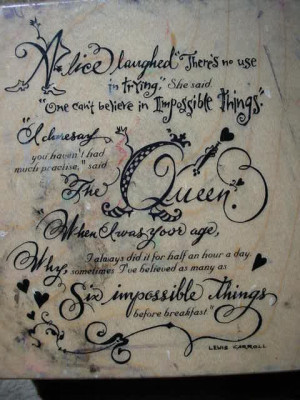 Alice laughed "There's no use
in trying," She said,
"One can't believe in Impossible Things."
"I daresay
you haven't had
much practise," said
The Queen.
When I was your age,
I always did it for half an hour a day.
Why, sometimes I've believed as many as
Six impossible Things
before breakfast"
LEWIS CARROLL